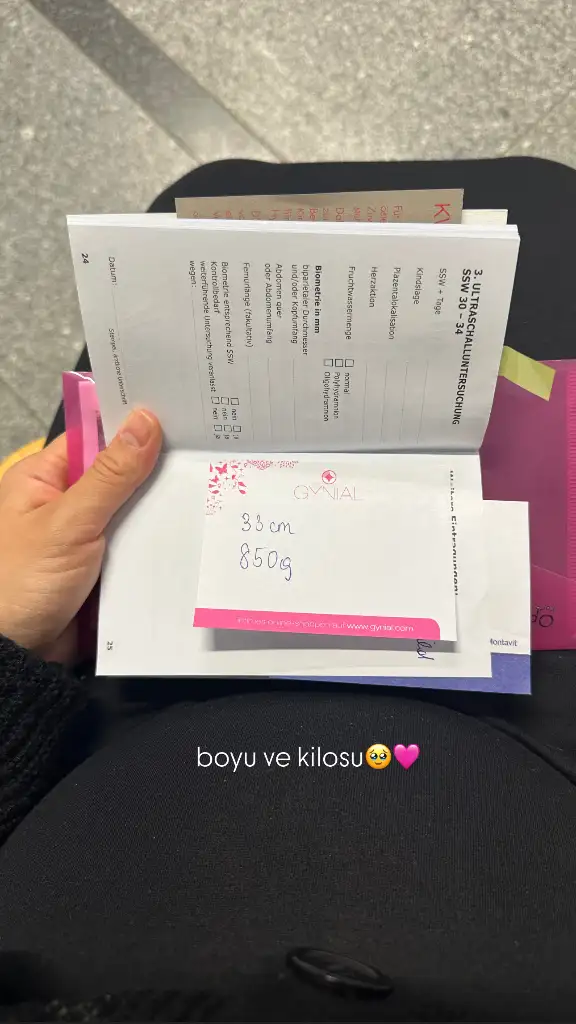 3. ULTRASCHALLUNTERSUCHUNG
SSW 30 – 34
SSW + Tage
Kindslage
Plazentalokalisation
Herzaktion
Fruchtwassermenge
normal
Polyhydramnion
Oligohydramnion
Biometrie in mm
biparietaler Durchmesser
und/oder Kopfumfang
Abdomen quer
oder Abdomenumfang
Femurlänge (fakultativ)
Biometrie entsprechend SSW
nein ja
Kontrollbedarf
nein ja
weiterführende Untersuchung veranlasst
nein ja
wegen:
Datum:
24
GYNIAL
33 cm
850g
www.gynial.com
Montavit
25
boyu ve kilosu🥹🩷